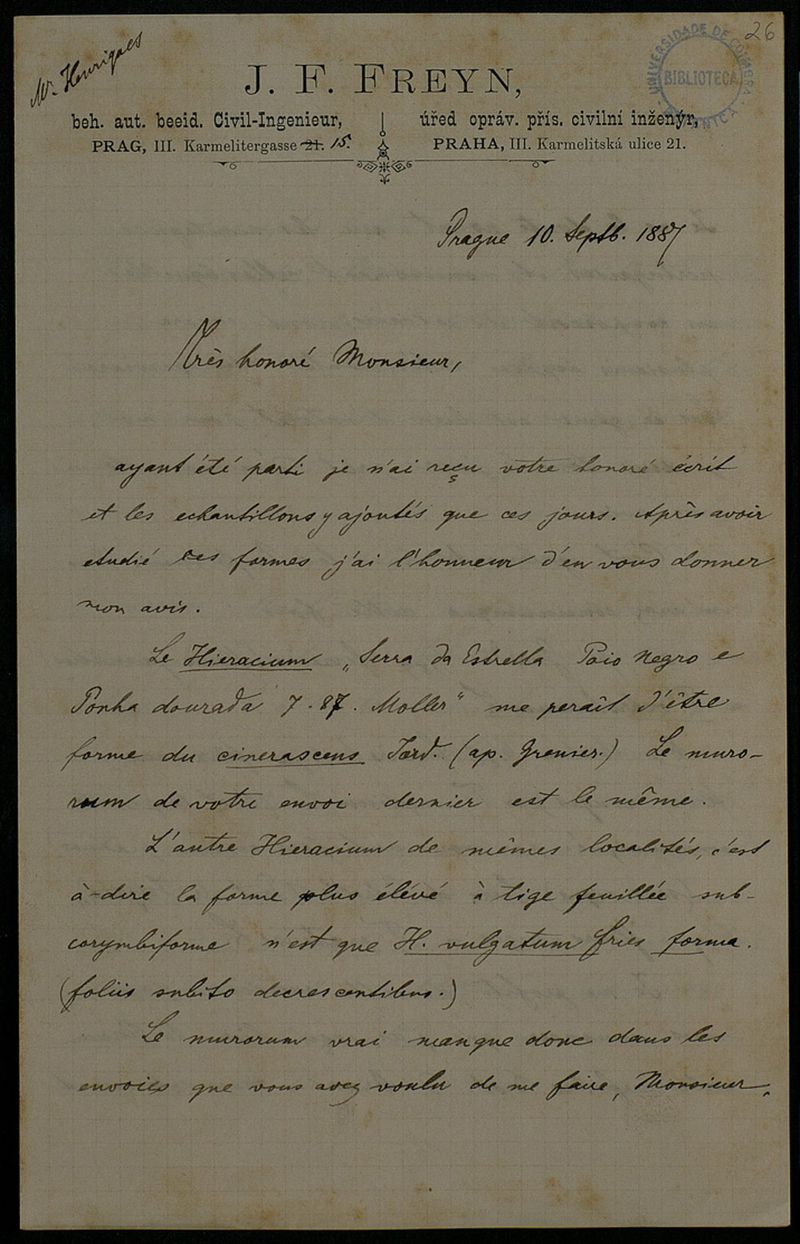 Mr. Henriques
26
UNIVERSIDADE DE COIMBRA
BIBLIOTECA
J. F. FREYN,
beh. aut. beeid. Civil-Ingenieur,
PRAG, III. Karmelitergasse 21. 15.
úřed opráv. přís. civilní inženýr,
PRAHA, III. Karmelitská ulice 21.
Prague 10. Septb. 1887
Très honoré Monsieur,
ayant été parti je n'ai reçu votre honoré écrit
et les echantillons y ajoutés que ces jours. Après avoir
etudié ces formes j'ai l'honneur d'en vous donner
mon avis.
Le Hieracium „Serra da Estrella Poio Negro e
Ponha dourada 7. 87. Moller" me perait d'être
forme du cinerascens Jord. (ap. Grenier.) Le muro-
rum de votre envoi dernier est le même.
L'autre Hieracium de mêmes localités, c'est
à-dire la forme plus élévé à tige feuillée sub-
corymbiforme n'est que H. vulgatum fries forma.
(foliis subito decrescentibus.)
Le murorum vrai manque donc dans les
envoies que vous avez voulu de me faire, Monsieur,